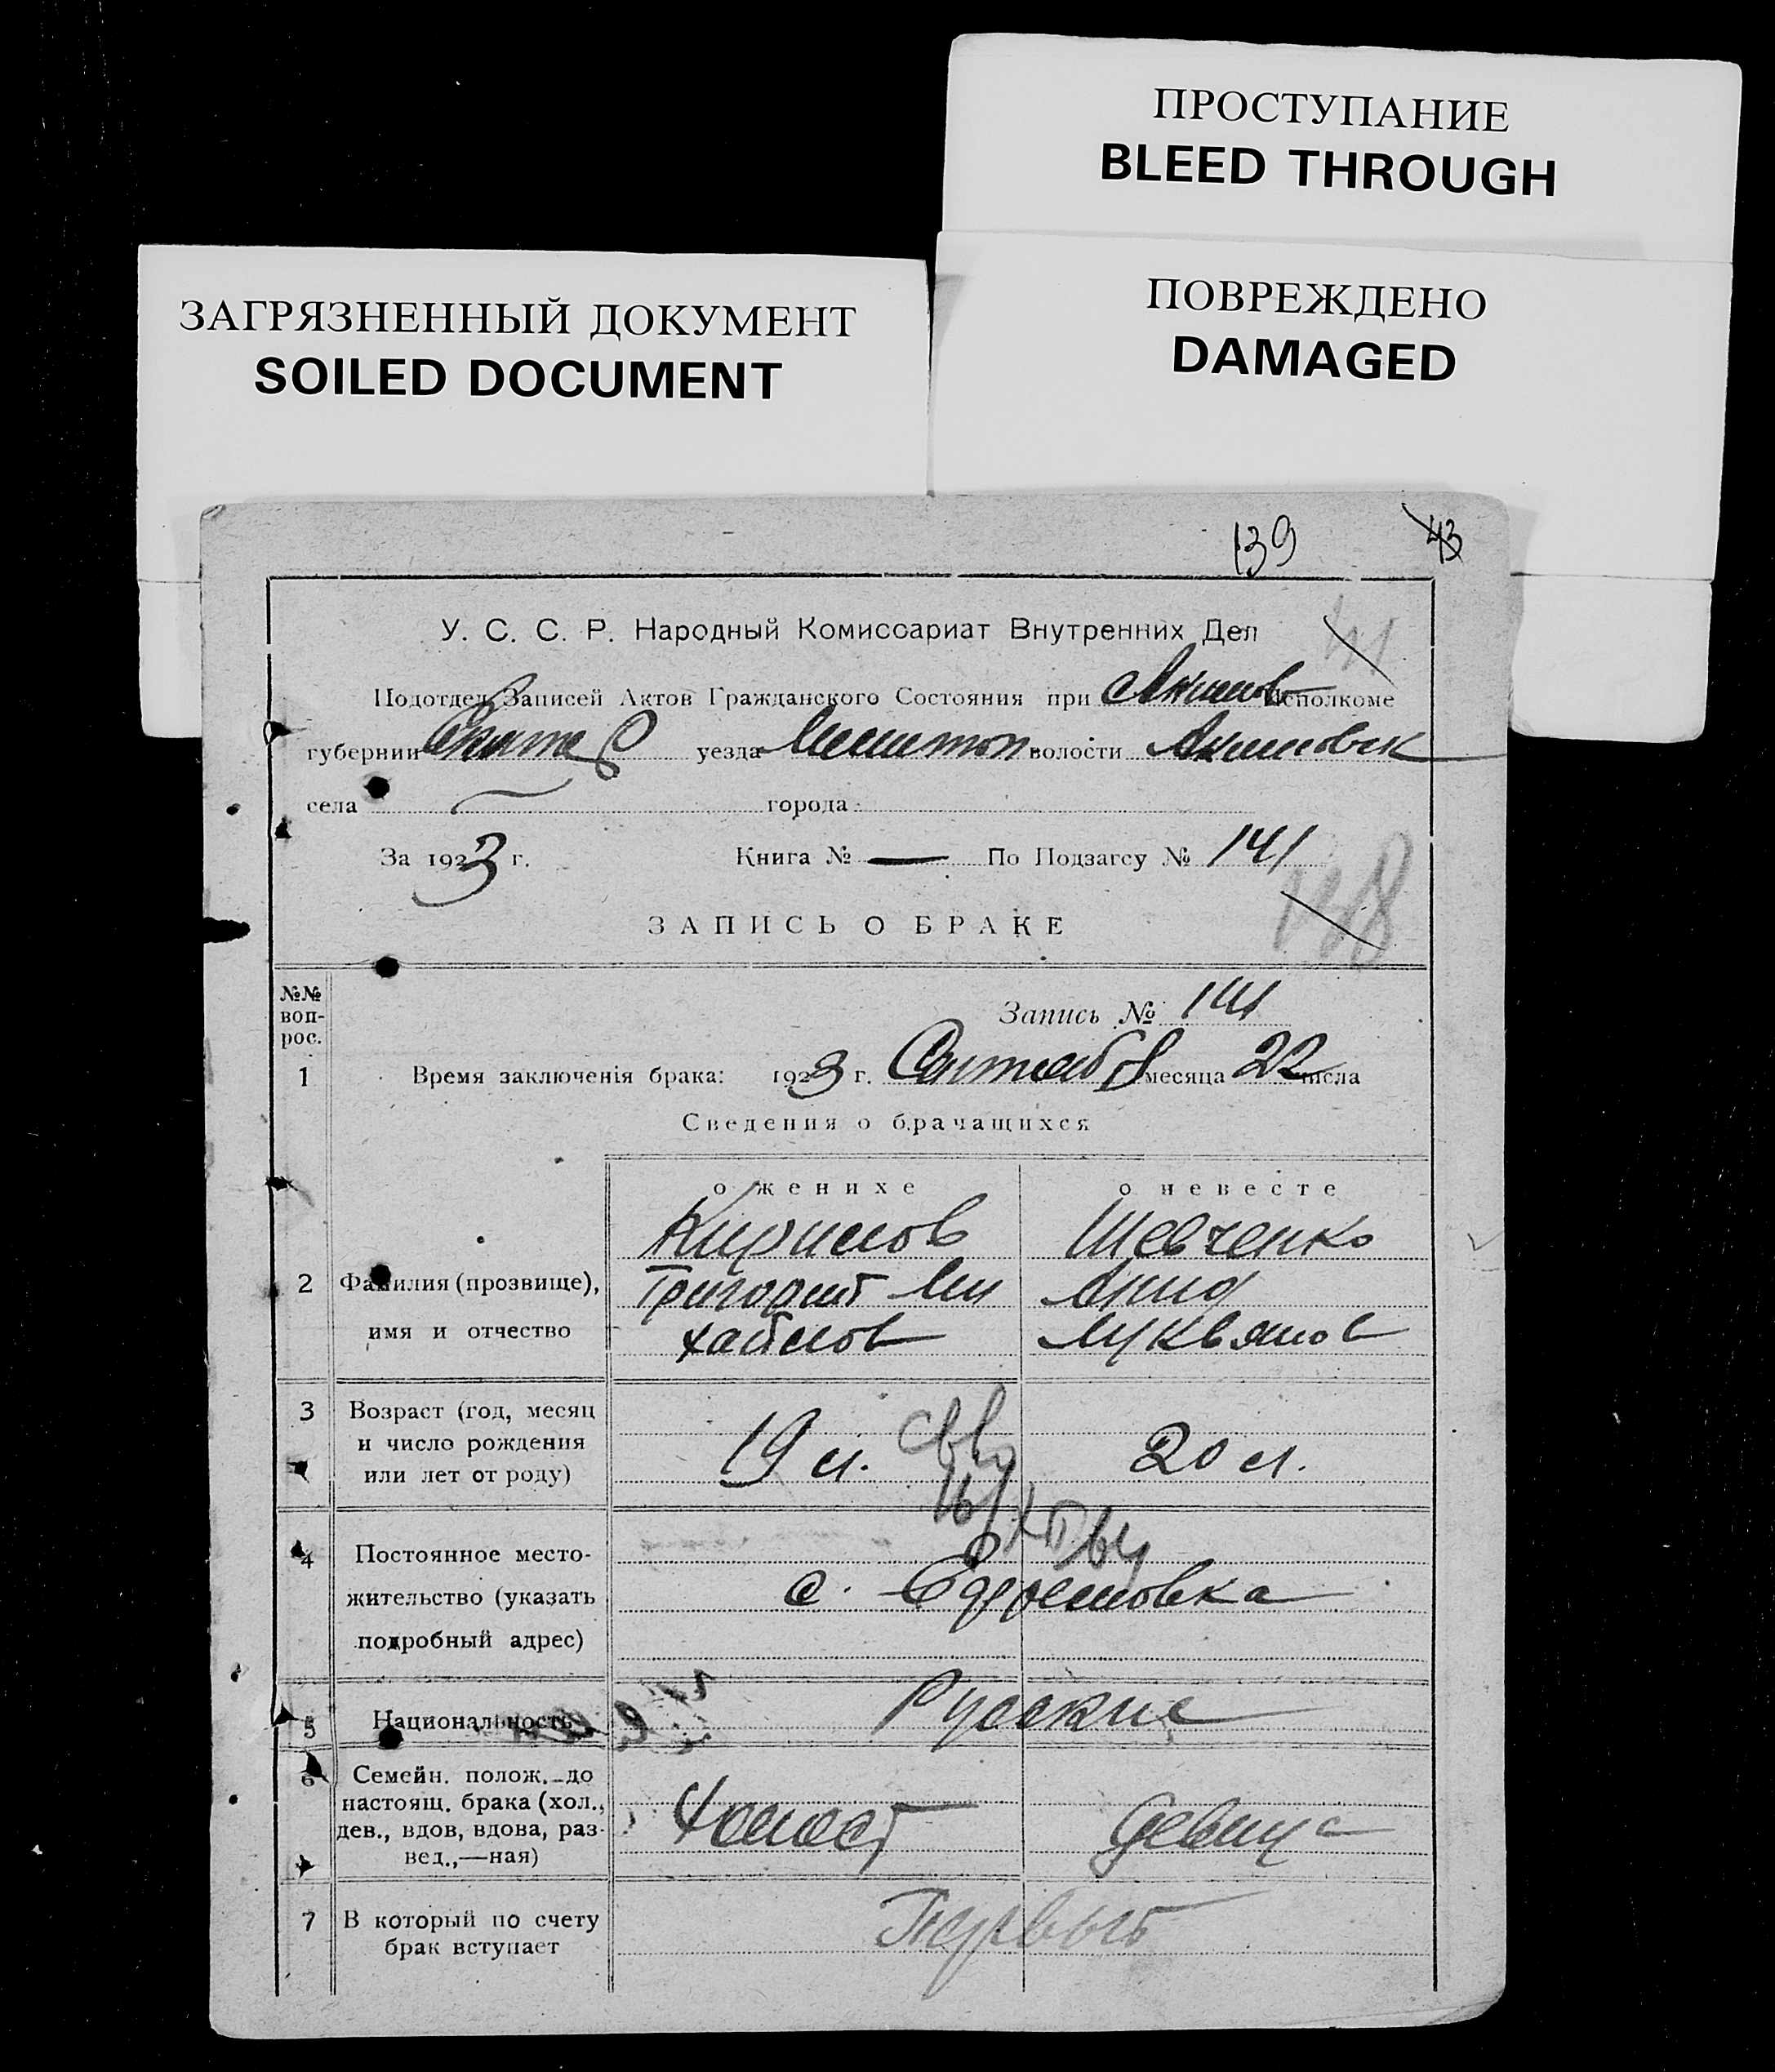 ПРОСТУПАНИЕ
BLEED THROUGH
ПОВРЕЖДЕНО
DAMAGED
ЗАГРЯЗНЕННЫЙ ДОКУМЕНТ
SOILED DOCUMENT
139 43
У. С. С. Р. Народный Комиссариат Внутренних Дел
Подотдел Записей Актов Гражданского Состояния при Акимов Исполкоме
губернии Екатер уезда Мелитоп волости Акимовск
села города
За 1923 г. Книга № — По Подзагсу № 141
138
ЗАПИСЬ О БРАКЕ
№№ вопрос.
Запись № 141
1 Время заключенія брака: 1923 г. Сентябр месяца 22 числа
Сведения о брачащихся
о женихе о невесте
Кирилов Шевченко
2 Фамилия (прозвище), Григорий Ми Анна
имя и отчество хайлов Лукьянов
3 Возраст (год, месяц
и число рождения 19 л. 20 л.
или лет от роду)
4 Постоянное место-
жительство (указать с. Ефремовка
подробный адрес)
5 Национальность Русские
6 Семейн. полож. до
настоящ. брака (хол., Холост девица
дев., вдов, вдова, раз-
вед.,—ная)
7 В который по счету Первый
брак вступает